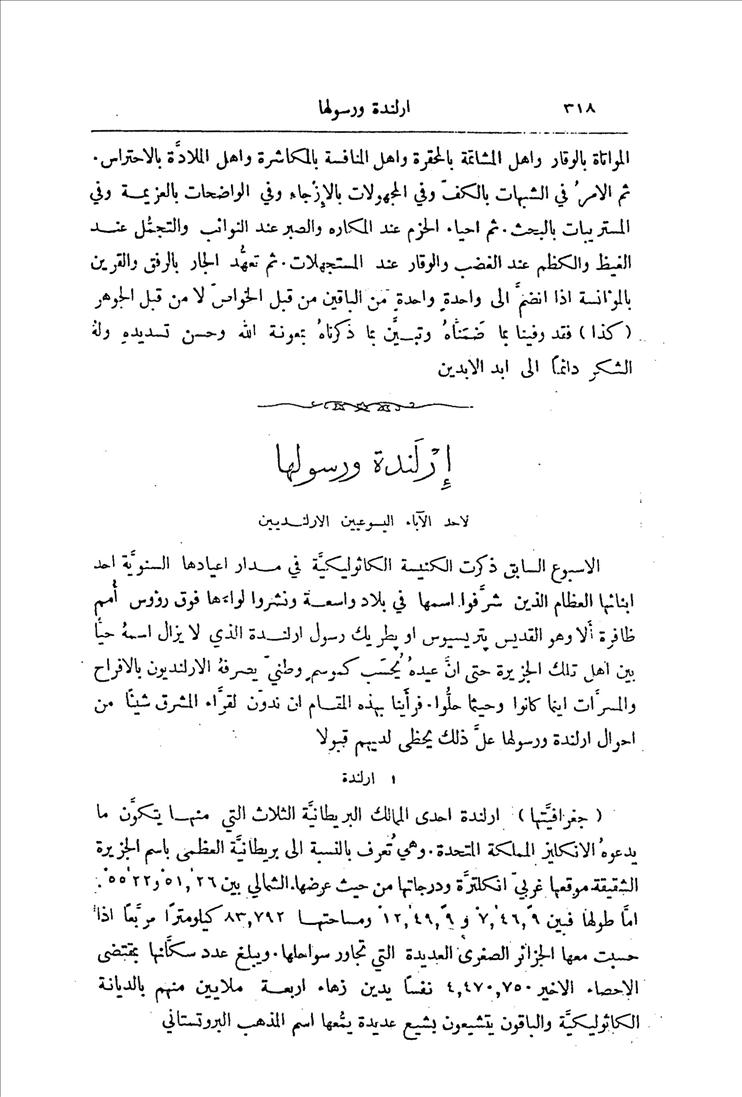 ٣١٨ ارلندة ورسولها
المواتاة بالوقار واهل المشاتمة بالمحقرة واهل المنافسة بالمكاشرة واهل الملادَّة بالاحتراس.
ثم الامرُ في الشبهات بالكفّ وفي المجهولات بالإِرْجاء وفي الواضحات بالعزيمة وفي
المستريبات بالبحث. ثم احياء الحزم عند المكاره والصبر عند النوائب والتجمُّل عند
الغيظ والكظم عند الغضب والوقار عند المستجهلات. ثم تعهُّد الجار بالرفق والقرين
بالمؤانسة اذا انضمَّ الى واحدةٍ واحدةٍ من الباقين من قبل الخواصّ لا من قبل الجوهر
(كذا) فقد وفينا بما ضَمَنَّاهُ وتبيَّن بما ذكرناهُ بمعونة الله وحسن تسديدهِ ولهُ
الشكر دائمًا الى ابد الابدين
إِرْلَندة ورسولها
لاحد الآباء اليسوعيين الارلنديين
الاسبوع السابق ذكرت الكنيسة الكاثوليكيَّة في مدار اعيادها السنويَّة احد
ابنائها العظام الذين شرَّفوا اسمها في بلاد واسعة ونشروا لواءها فوق رؤوس أُمم
ظافرة أَلا وهو القديس پتريسيوس او پطريك رسول ارلندة الذي لا يزال اسمهُ حيًّا
بين اهل تلك الجزيرة حتى انَّ عيدهُ يُحسَب كموسمٍ وطنيّ يصرفهُ الارلنديون بالافراح
والمسرَّات اينما كانوا وحيثما حلُّوا. فرأينا بهذه المقام ان ندوّن لقرَّاء المشرق شيئًا من
احوال ارلندة ورسولها علَّ ذلك يحظى لديهم قبولا
١ ارلندة
(جغرافيَّتها) ارلندة احدى المالك البريطانيَّة الثلاث التي منها يتكوَّن ما
يدعوهُ الانكليز المملكة المتحدة. وهي تُعرف بالنسبة الى بريطانيَّة العظمى باسم الجزيرة
الشقيقة. موقعها غربيّ انكلترَّة ودرجاتها من حيث عرضها الشمالي بين ٢٦َ,٥١ْ و٢٢َ ٥٥ْ.
امَّا طولها فبين ٩ً,٤٦َ,٧ْ و ٩ً,٤٩َ,١٢ْ ومساحتها ٨٣,٧٩٢ كيلومترًا مربَّعًا اذا
حسبت معها الجزائر الصغرى العديدة التي تجاور سواحلها. ويبلغ عدد سكَّانها بمقتضى
الاحصاء الاخير ٤,٤٧٠,٧٥٠ نفسًا يدين زهاء اربعة ملايين منهم بالديانة
الكاثوليكيَّة والباقون يتشيعون بشيع عديدة يعُمّها اسم المذهب البروتستاني